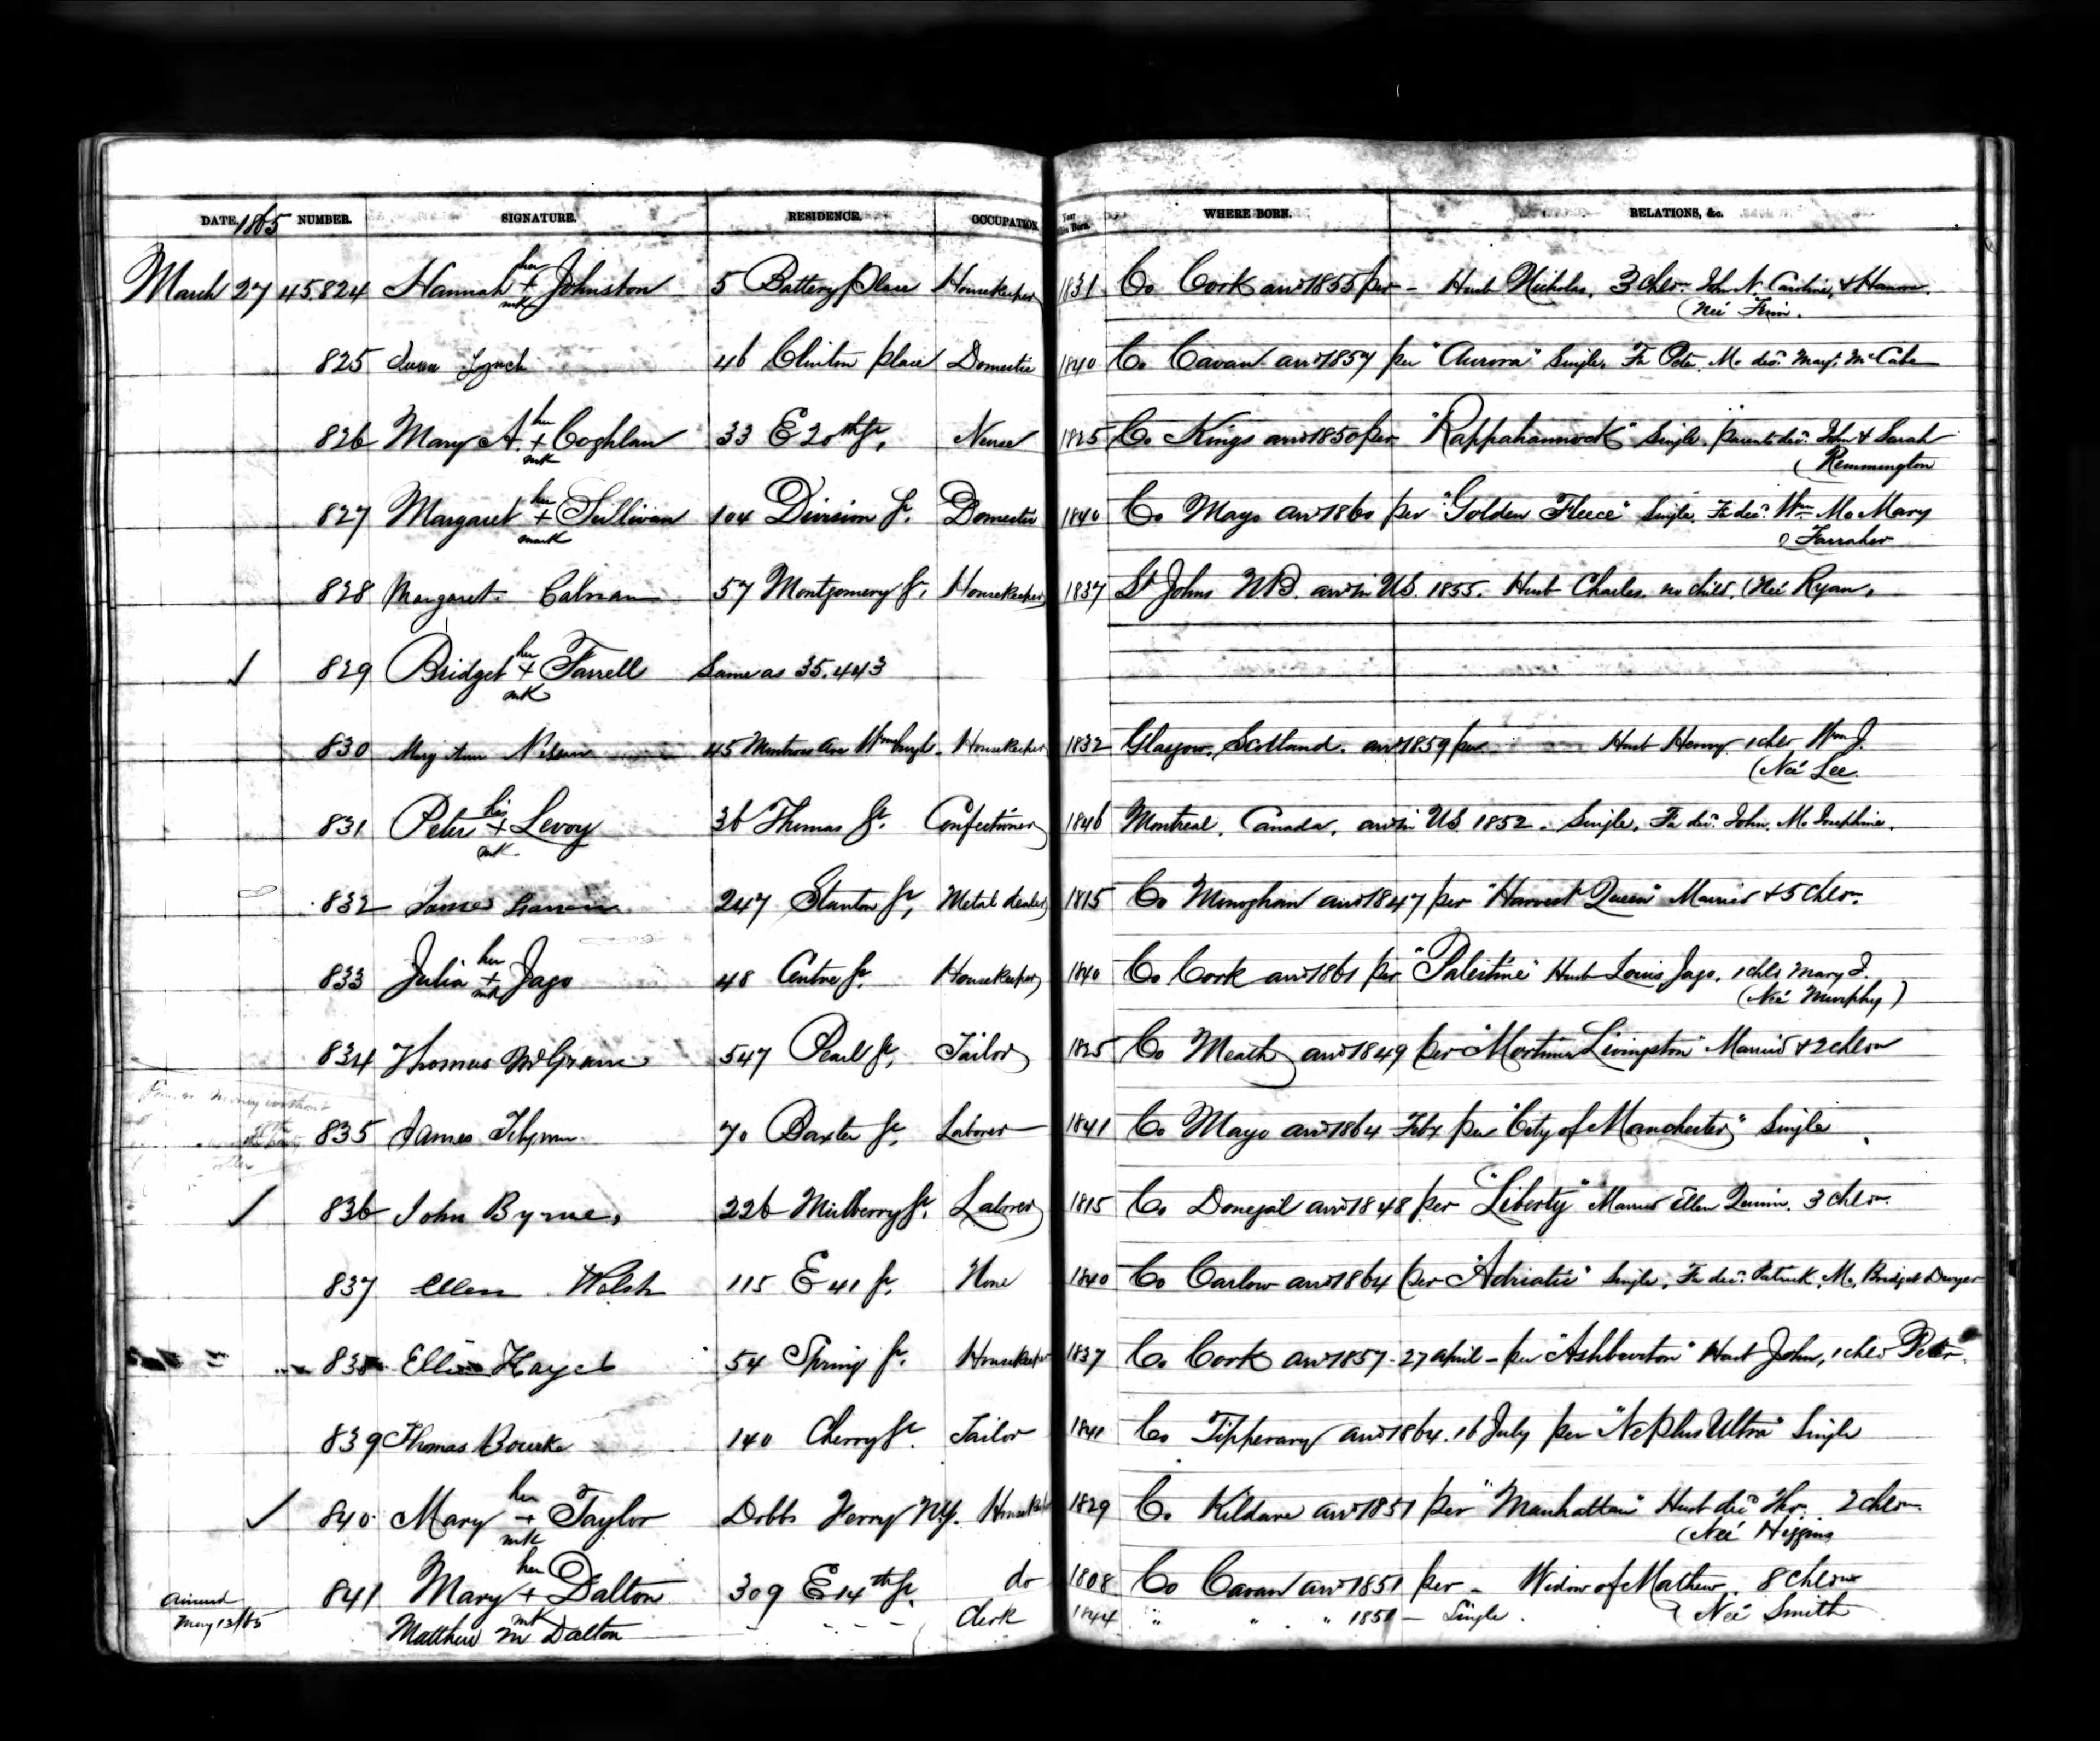 DATE, 1865 NUMBER. SIGNATURE. RESIDENCE. OCCUPATION Year When Born. WHERE BORN. RELATIONS, &c.
March 27 45.824 Hannah her + mk Johnston 5 Battery Place Housekeeper 1831 Co Cork arrd 1855 per – Husb Nicholas, 3 chldn John N. Caroline, & Hanora.
(Neé Finn.
825 Lynch 46 Clinton place Domestic 1840 Co Cavan arrd 1857 per "Aurora" Single. Fa Peter, Mo decd Margt McCabe
826 Mary A. her + mk Coghlan 33 E 20th St, Nurse 1825 Co Kings arrd 1850 per "Rappahannock" Single, parents decd John & Sarah
(Remmington
827 Margaret her + mark Sullivan 104 Division St. Domestic 1840 Co Mayo arrd 1860 per "Golden Fleece" Single, Fa decd Wm Mo Mary
Farraher
828 Margaret Calnan 57 Montgomery St, Housekeeper 1837 St Johns NB. arrd in US. 1855. Husb Charles. no child. (Neé Ryan.
829 Bridget her + mk Farrell Same as 35.443
830 Mary Ann Nelson 45 Montrose Ave Wmburgh. Housekeeper 1832 Glasgow, Scotland. arrd 1859 per Husb Henry 1 chld Wm J.
(Neé Lee.
831 Peter his + mk Levoy 36 Thomas St. Confectioner 1846 Montreal, Canada, arrd in US 1852. Single, Fa decd John, Mo Josephine.
832 James 247 Stanton St, Metal dealer 1815 Co Monoghan arrd 1847 per "Harvest Queen" Married & 5 chldn.
833 Julia her + mk Jago 48 Centre St. Housekeeper 1840 Co Cork arrd 1861 per "Palestine" Husb Louis Jago, 1 chld Mary J.
(Neé Murphy)
834 Thomas 547 Pearl St, Tailor 1825 Co Meath arrd 1849 per "Mortimer Livingston" Married & 2 chldn
835 James 70 Baxter St, Laborer 1841 Co Mayo arrd 1864 Feby per "City of Manchester" Single
836 John Byrne, 226 Mulberry St, Laborer 1815 Co Donegal arrd 1848 per "Liberty" Married Ellen Quinn. 3 chldn.
837 Ellen Welsh 115 E 41 St. None 1840 Co Carlow arrd 1864 per "Adriatic" Single, Fa decd Patrick, Mo, Bridget Dwyer
838 Ellen Hayes 54 Spring St. Housekeeper 1837 Co Cork arrd 1857 – 27 april – per "Ashburton" Husb John, 1 chld Peter.
839 Thomas Bourke 140 Cherry St. Tailor 1841 Co Tipperary arrd 1864. 16 July per "Ne Plus Ultra" Single
840 Mary her + mk Taylor Dobbs Ferry N.Y. Housekeeper 1829 Co Kildare arrd 1851 per "Manhattan" Husb decd Thos. 2 chldn.
(Neé Higgins
841 Mary her + mk Dalton 309 E 14th St. do 1808 Co Cavan arrd 1851 per – Widow of Mathew. 8 chldn
May 13/65 Matthew M Dalton – – – – Clerk 1844 " " " 1851 – Single. Neé Smith